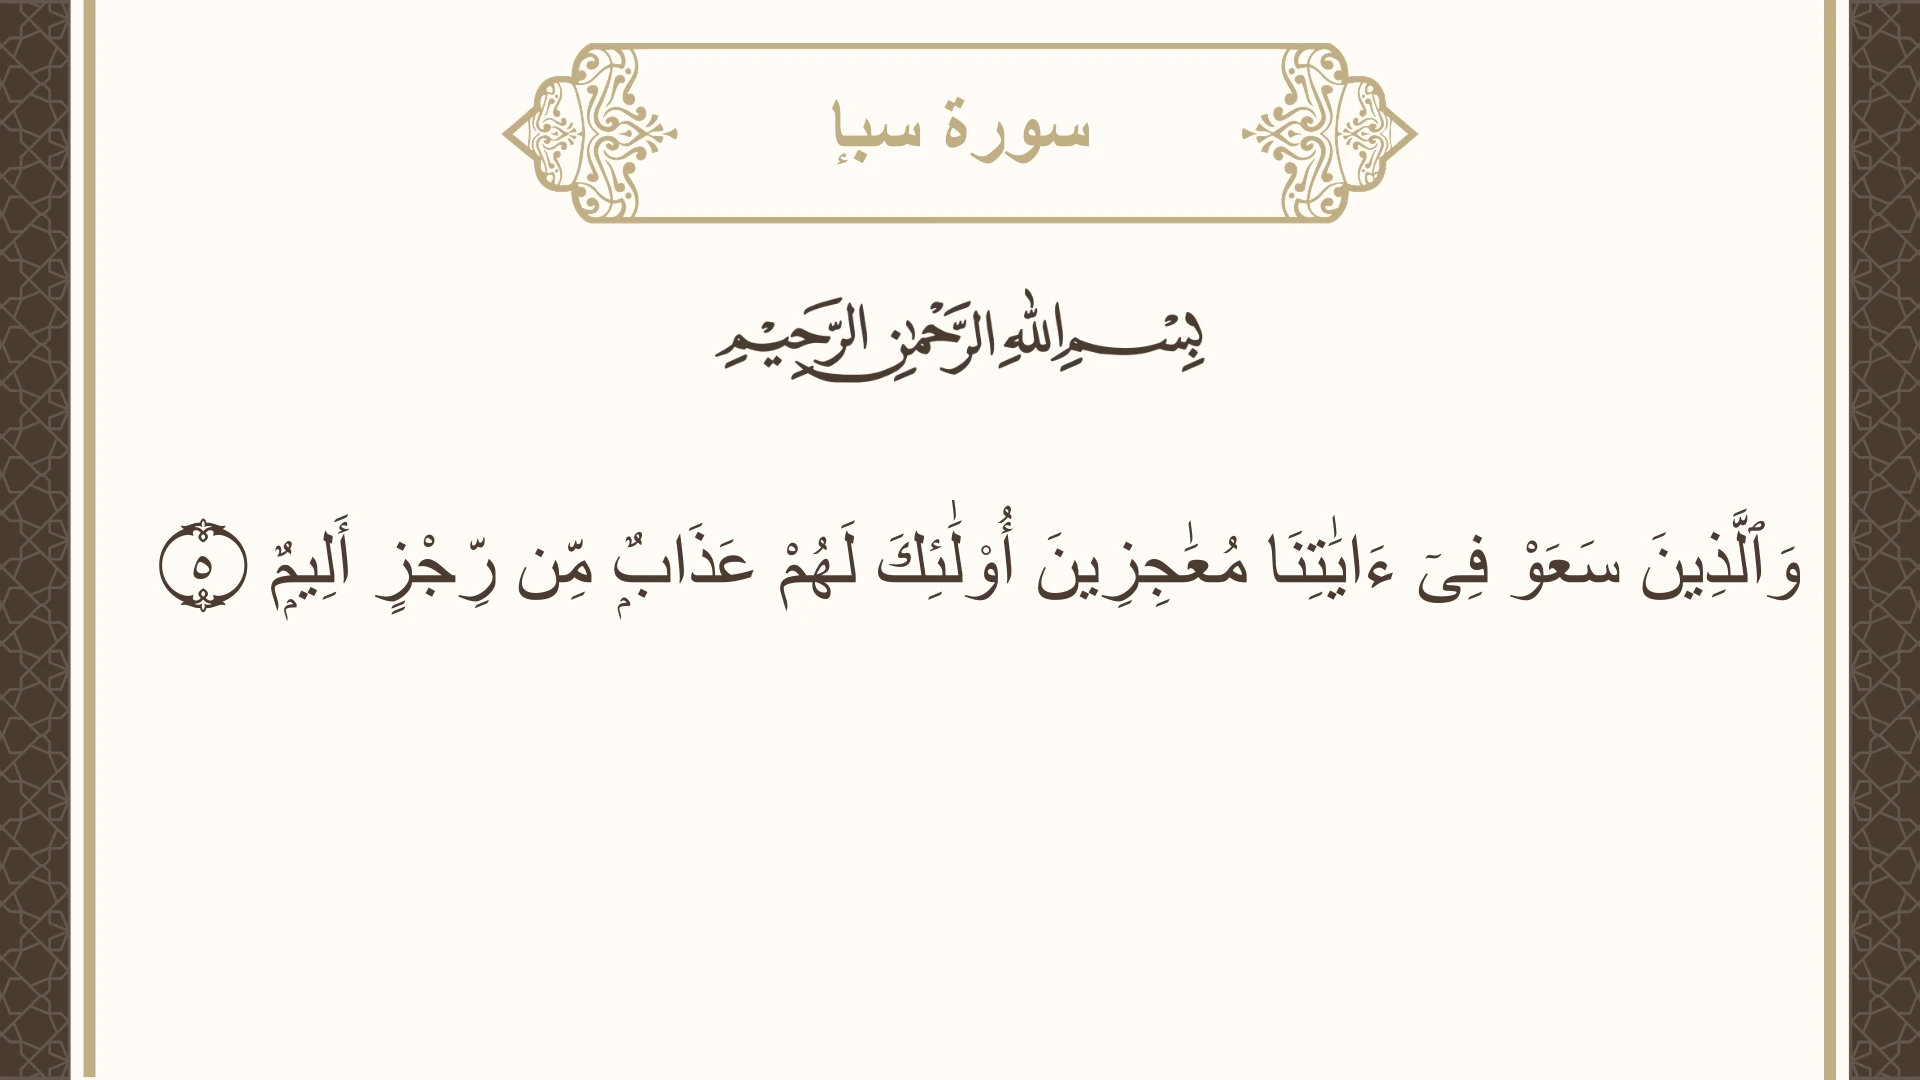 سورة سبإ
بِسْمِ اللهِ الرَّحْمٰنِ الرَّحِيْمِ
وَٱلَّذِينَ سَعَوْ فِىٓ ءَايَٰتِنَا مُعَٰجِزِينَ أُوْلَٰٓئِكَ لَهُمْ عَذَابٌۭ مِّن رِّجْزٍ أَلِيمٌۭ ٥